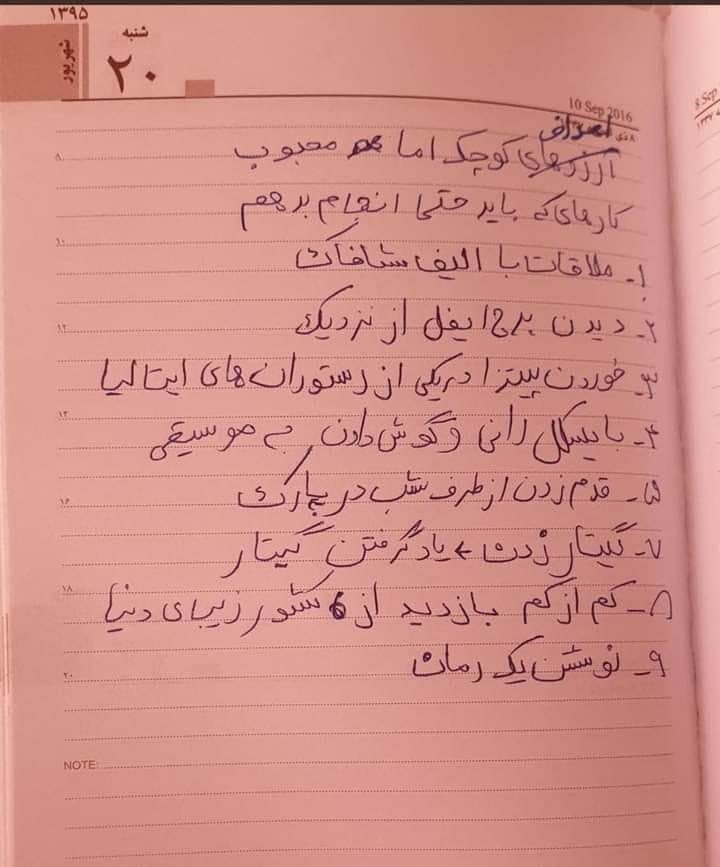 ۱۳۹۵
شهریور
شنبه
۲۰
10 Sep 2016
۸ ذی
8 Sep
اهداف
آرزوهای کوچک اما محبوب
۸
کارهای که باید حتما انجام بدهم
۱۰
۱- ملاقات با الیف شافاک
۲- دیدن برج ایفل از نزدیک
۱۲
۳- خوردن پیتزا در یکی از رستوران های ایتالیا
۱۴
۴- بایسکل رانی و گوش دادن به موسیقی
۵- قدم زدن از طرف شب در پارک
۱۶
۷- گیتار زدن ← یاد گرفتن گیتار
۱۸
۸- کم از کم بازدید از 6 کشور زیبای دنیا
۹- نوشتن یک رمان
۲۰
NOTE: